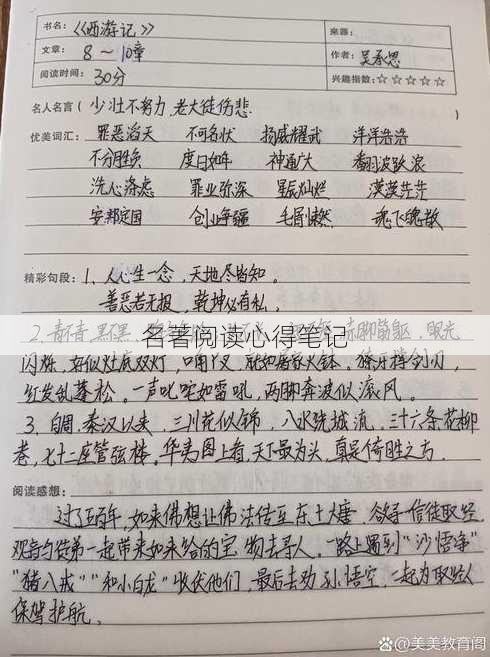 书名：《西游记》
来源：
文章：8～10章
作者：吴承恩
阅读时间：30分
兴趣指数：☆☆☆☆☆
名人名言（少壮不努力,老大徒伤悲.
优美词汇： 罪恶滔天 不可名状 扬威耀武 洋洋浩浩
不分胜负 度日如年 神通广大 翻波跃浪
洗心涤虑 罪业弥深 星辰灿烂 漠漠茫茫
安邦定国 创业争疆 毛骨悚然 魂飞魄散
精彩句段：1、人心生一念，天地尽皆知。
善恶若无报，乾坤必有私。
2、青不青,黑不黑, 赤脚筋躯，眼光
名著阅读心得笔记
闪烁，好似灶底双灯，口角丫叉，就如屠家火钵。獠牙撑剑刃，
红发乱蓬松。一声叱咤如雷吼，两脚奔波似滚风。
3、自周、秦汉以来，三川花似锦，八水绕城流，三十六条花柳
巷，七十二座管弦楼。华夷图上看，天下最为头，真是奇胜之方。
阅读感想：
过了五百年，如来佛想让佛法传至东土大唐，
观音 徒弟一起带来如来给的宝物去寻人，一路上遇到"沙悟净"
"猪八戒""和小白龙"收伏他们，最后去劝孙悟空，一起为取经人
保驾护航。
@美美教育阁